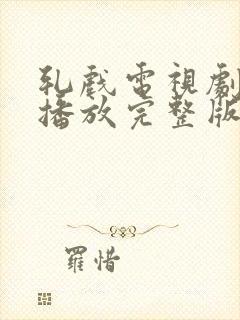 乳戲電視劇
播放完整版
羅惜